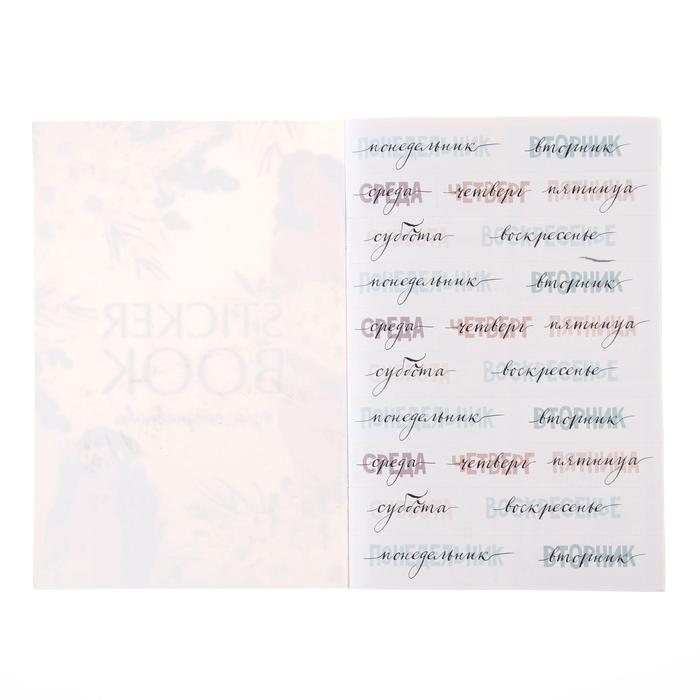 STICKER
BOOK
понедельник вторник
ПОНЕДЕЛЬНИК ВТОРНИК
среда четверг пятница
СРЕДА ЧЕТВЕРГ ПЯТНИЦА
суббота воскресенье
ВОСКРЕСЕНЬЕ
понедельник вторник
ПОНЕДЕЛЬНИК ВТОРНИК
среда четверг пятница
СРЕДА ЧЕТВЕРГ ПЯТНИЦА
суббота воскресенье
ВОСКРЕСЕНЬЕ
понедельник вторник
ПОНЕДЕЛЬНИК ВТОРНИК
среда четверг пятница
СРЕДА ЧЕТВЕРГ ПЯТНИЦА
суббота воскресенье
ВОСКРЕСЕНЬЕ
понедельник вторник
ПОНЕДЕЛЬНИК ВТОРНИК